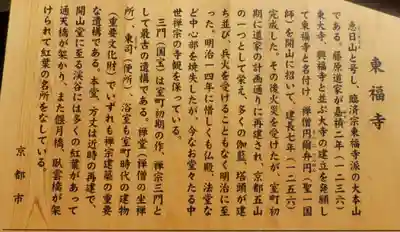 東福寺
恵日山と号し、臨済宗東福寺派の大本山
である。藤原道家が嘉禎二年(一二三六)
東大寺、興福寺と並ぶ大寺の建立を発願し
て東福寺と名付け、禅僧円爾弁円(聖一国
師)を開山に招いて、建長七年(一二五五)
完成した。その後火災を受けたが、室町初
期に道家の計画通りに再建され、京都五山
の一つとして栄え、多くの伽藍、塔頭が建
ち並び、兵火を受けることもなく明治に至
った。明治一四年に惜しくも仏殿、法堂な
ど中心部を焼失したが、今なお堂々たる中
世禅宗の寺観を保っている。
三門(国宝)は室町初期の作、禅宗三門と
して最古の遺構である。禅堂(禅僧の坐禅
所)、東司(便所)、浴室も室町時代の建物
(重要文化財)でいずれも禅宗建築の重要
な遺構である。本堂、方丈は近時の再建で、
開山堂に至る渓谷には多くの紅葉があって
通天橋が架かり、また偃月橋、臥雲橋が架
けられて紅葉の名所をなしている。
京都市